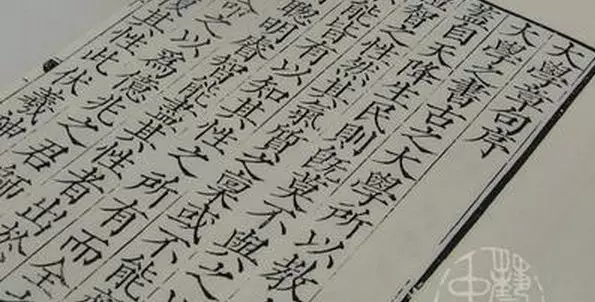 大學章句序
大學之書古之大學所以教
蓋自天降生民則既莫不與之
智之性然其氣質之稟或不能
能皆有以知其性之所有而全
聰明睿智能盡其性者出於
命之以為億兆之君師
復其性此伏羲神